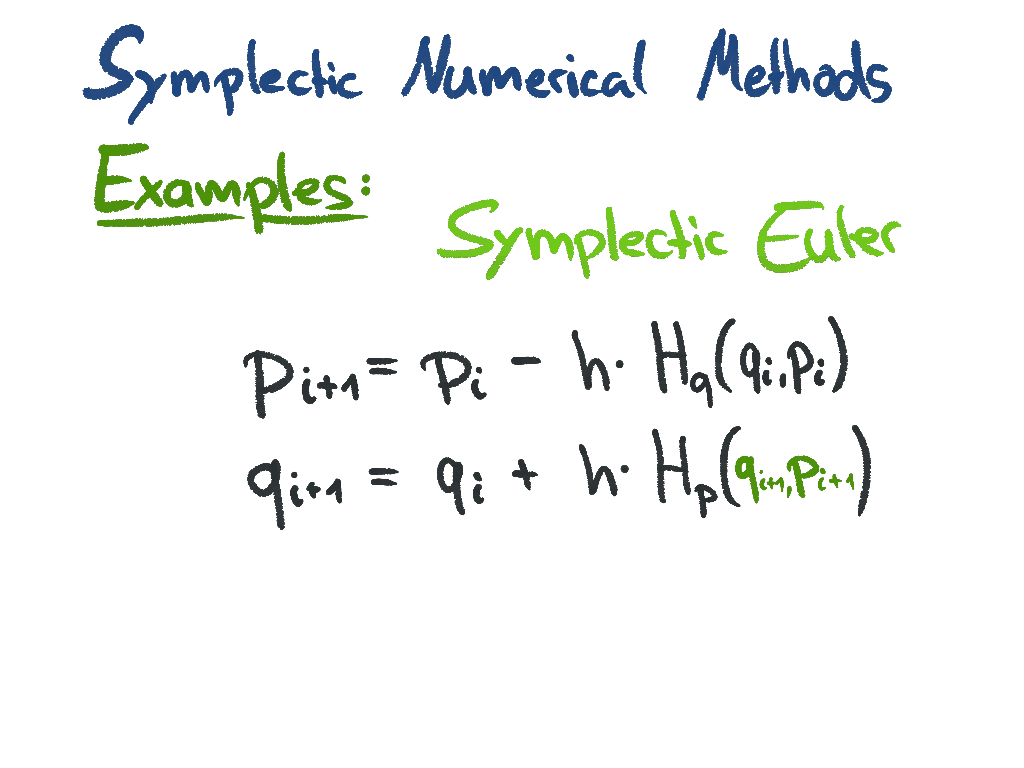 Symplectic Numerical Methods
Examples:
Symplectic Euler
p_{i+1} = p_i - h · H_q(q_i, p_i)
q_{i+1} = q_i + h · H_p(q_{i+1}, p_{i+1})